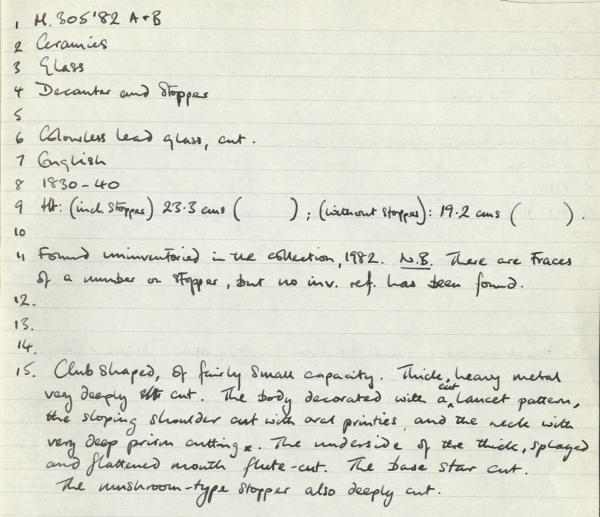 1 M.305'82 A+B
2 Ceramics
3 Glass
4 Decanter and Stopper
5
6 Colourless lead glass, cut.
7 English
8 1830-40
9 Ht: (incl. stopper) 23.3 cms (      ) ; (without stopper): 19.2 cms (      ).
10
11 Found uninventoried in the collection, 1982. N.B. There are traces
of a number on stopper, but no inv. ref. has been found.
12.
13.
14.
15. Club shaped, of fairly small capacity. Thick, heavy metal
very deeply cut. The body decorated with a cut lancet pattern,
the sloping shoulder cut with oval printies, and the neck with
very deep prism cutting. The underside of the thick, splayed
and flattened mouth flute-cut. The base star cut.
The mushroom-type stopper also deeply cut.